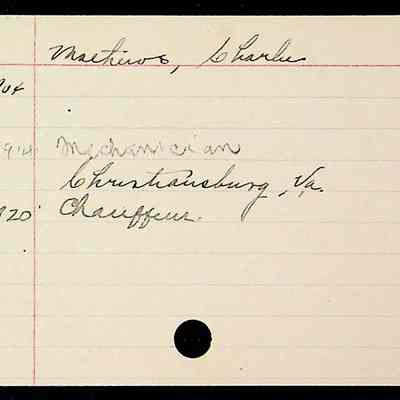 Mathews, Charlie
04
914 Mechanician
Christiansburg, Va.
920 Chauffeur.